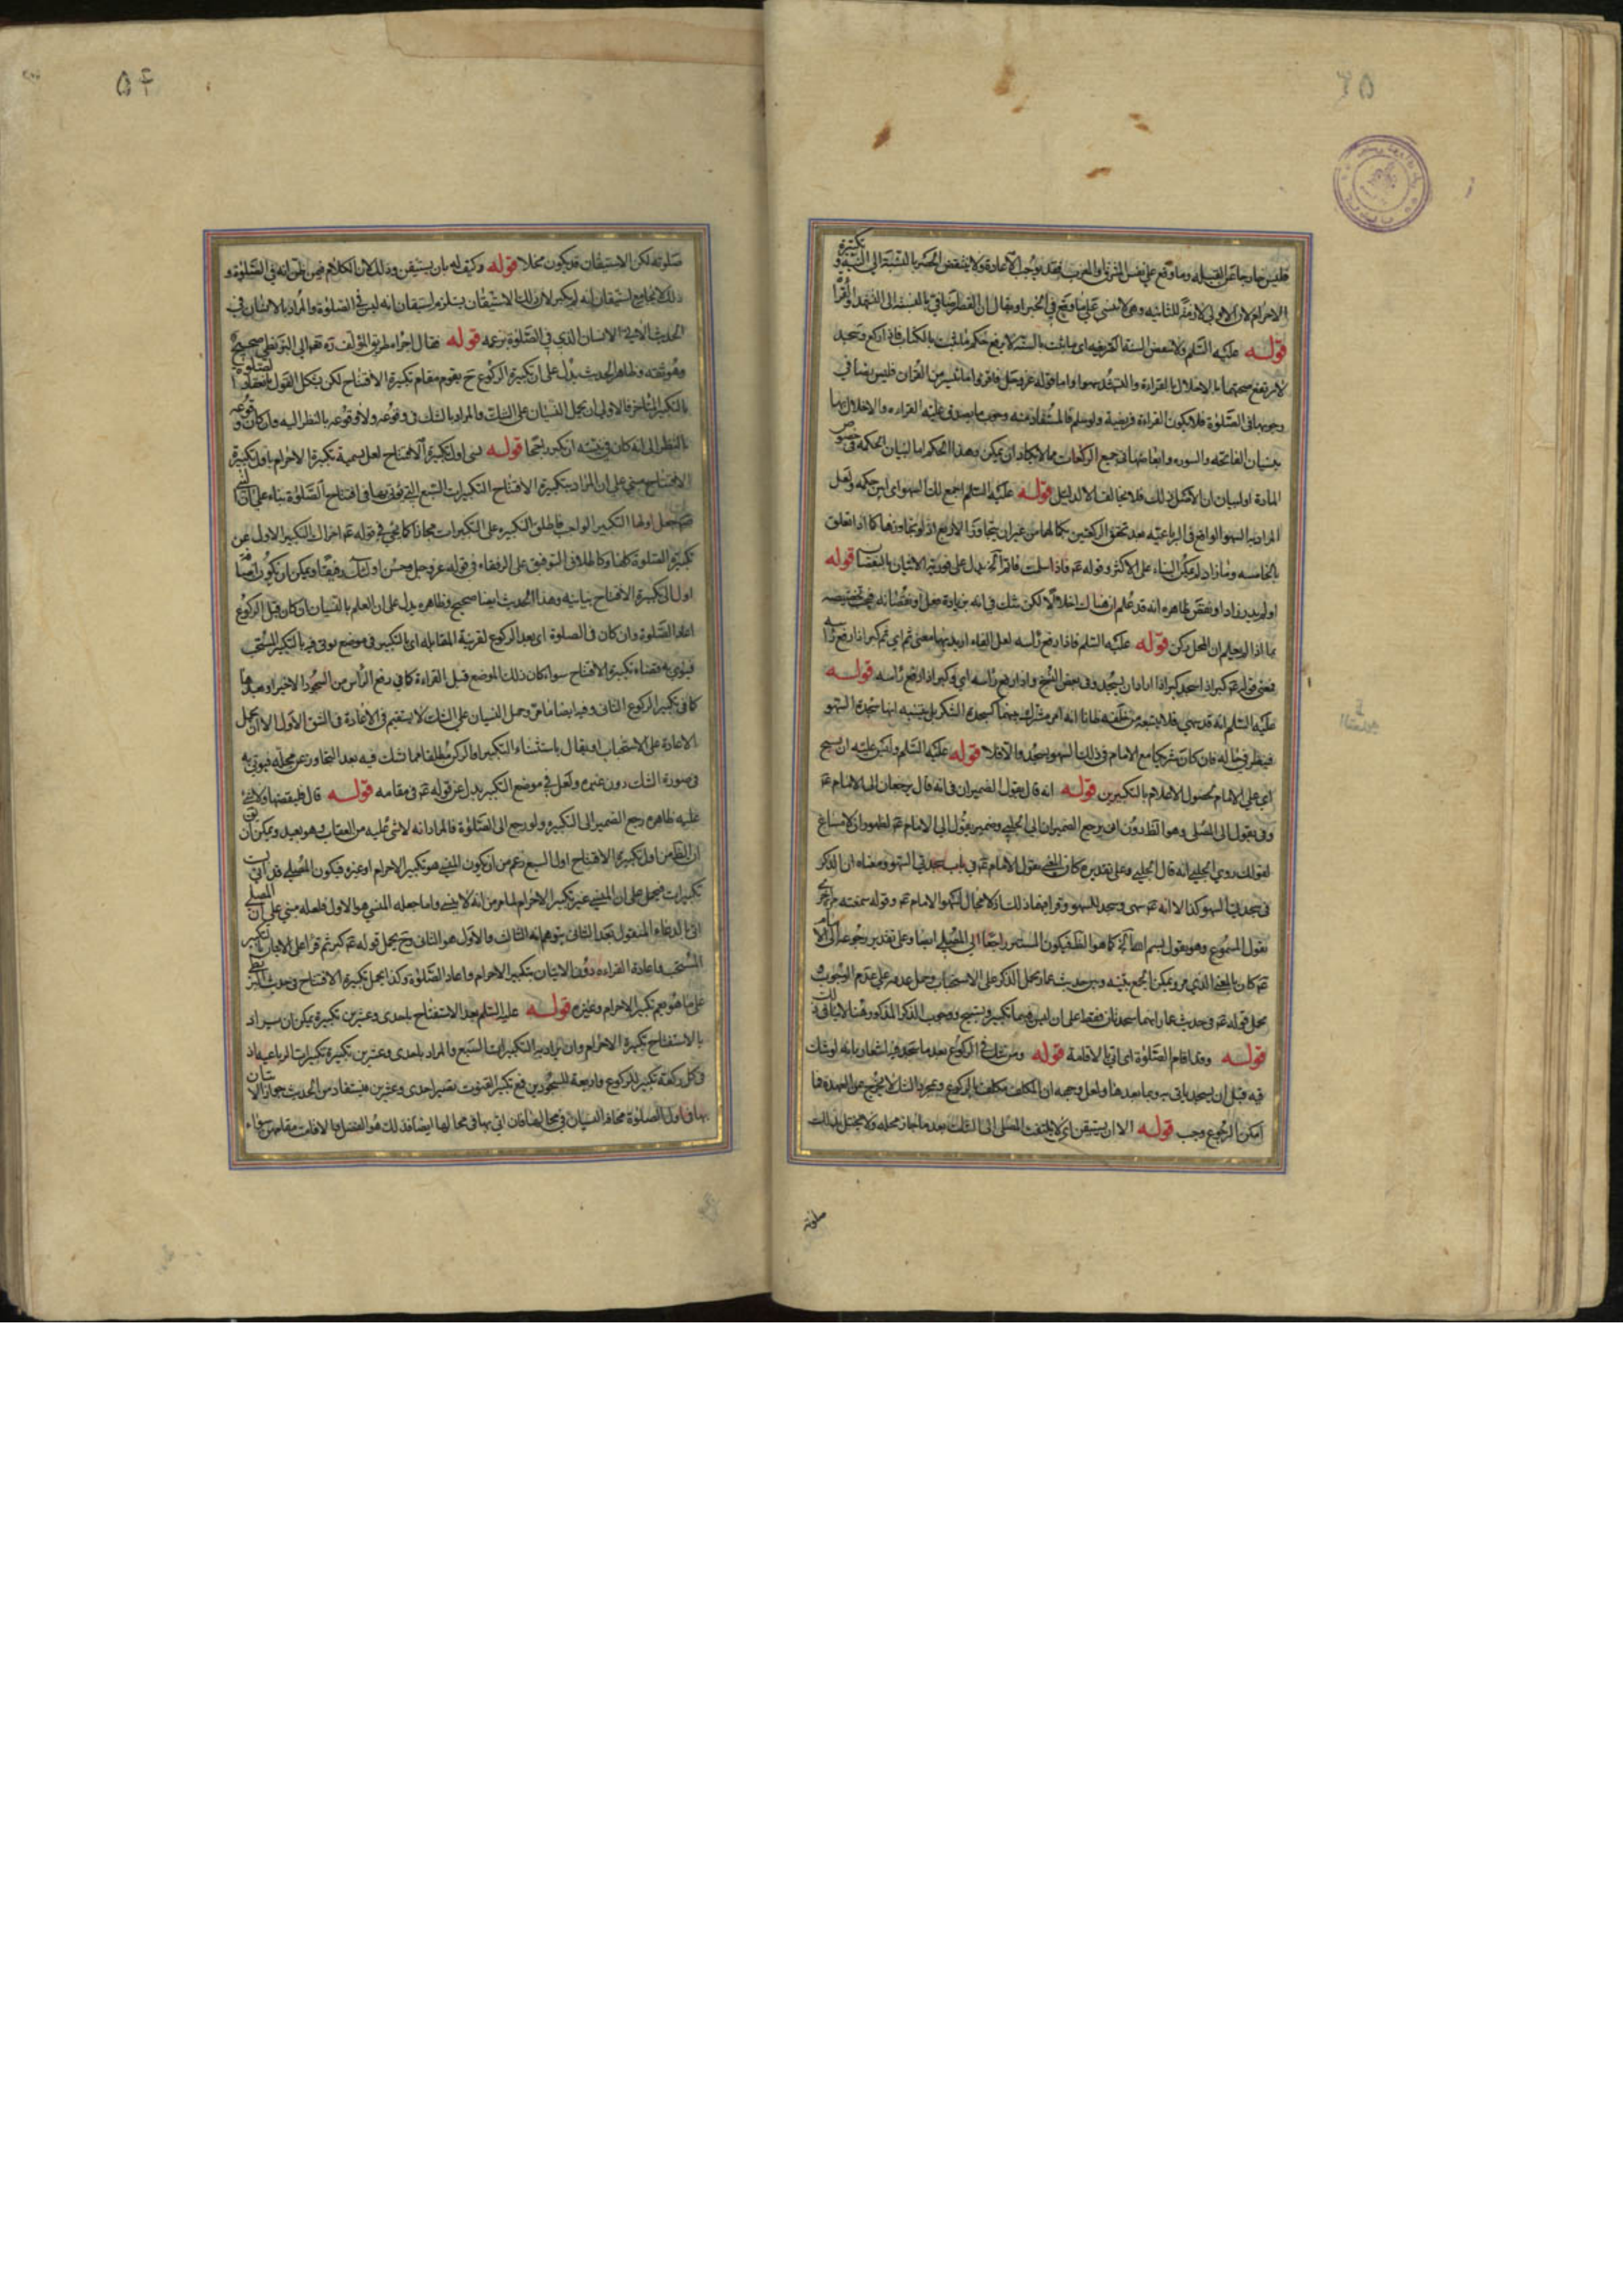 فليس خارجا عن القبلة وما وقع على نفس المشرق والمغرب فقد يوجب الاعادة ولا ينتقض الحصر بالنسبة الى النية و تكبيرة
الاحرام لان الاولى لازمة للثانية وهى لا تنسى على ما وقع في الخبر او يقال ان الحصر اضافي بالنسبة الى التشهد والقراءة
قوله عليه السلم ولا تنقض السنة الفريضة اى ما يثبت بالسنة لا يرفع حكم ما يثبت بالكتاب فاذا ركع وسجد
لا يرتفع صحتهما بالاخلال بالقراءة والتشهد سهوا واما قوله عز وجل فاقرؤا ما تيسر من القران فليس نصا في
وجوبها في الصلوة فلا يكون القراءة فريضة ولو سلم فالمستفاد منه وجوب ما يصدق عليه القراءة والاخلال بها
بنسيان الفاتحة والسورة وابعاضها في جميع الركعات مما لا يكاد ان يمكن وهذا الحكم اما لبيان الحكمة في خصوص
المادة او لبيان ان الاصل ذلك فلا يخالف الا لدليل قوله عليه السلم اجمع لك السهو اى ابين حكمه ولعل
المراد به السهو الواقع في الرباعية بعد تحقق الركعتين بكمالهما من غير ان يتجاوز الاربع اذ لو تجاوزها كما اذا تعلق
بالخامسة وما زاد لم يمكن البناء على الاكثر وقوله عم فاذا سلمت فاتم آه يدل على فورية الاتيان بالنقصان قوله
او لم يدر زاد او نقص ظاهره انه قد علم ان هناك اخلالا لكن شك في انه بزيادة فعل او نقصانه فيمكن تخصيصه
بما اذا لم يعلم ان المحل ركن قوله عليه السلم فاذا رفع راسه لعل الفاء اريد بها معنى ثم اى ثم كبر اذا رفع راسه
فمعنى قوله عم كبر اذا سجد كبر اذا اراد ان يسجد وفي بعض النسخ واذا رفع راسه اى وكبر اذا رفع راسه قوله
عليه السلم انه قد سهى فلا يتبعه من خلفه ظانا انه امر مشترك بينهما كسجدة الشكر بل يتنبه انها سجدة السهو
فينظر في حاله فان كان شريكا مع الامام في ذلك السهو يسجد والا فلا قوله عليه السلم وليس عليه ان يسبح
اى على الامام لحصول الاعلام بالتكبيرين قوله انه قال يقول الضميران في انه قال يرجعان الى الامام عم
وفي يقول الى المصلى وهو الظ دون ان يرجع الضميران الى الحلبى وضمير يقول الى الامام عم لظهور ان لا مساغ
لقولك روى الحلبى انه قال الحلبى وعلى تقديره كان المعنى يقول الامام عم في باب سجدتى السهو ومعناه ان الذكر
في سجدتى السهو كذا لا انه عم سهى وسجد للسهو وقرا فيها ذلك اذ لا مجال لسهو الامام عم وقوله سمعته مرة اخرى
يقول المسموع وهو يقول بسم الله آه كما هو الظ فيكون المستتر راجعا الى المصلى ايضا وعلى تقدير رجوعه الى الامام
عم كان بالمعنى الذى مر ويمكن الجمع بينه وبين حديث عمار بحمل الذكر على الاستحباب وحمل عدمه على عدم الوجوب او
بحمل قوله عم في حديث عمار انهما سجدتان فقط على ان ليس فيهما تكبير وتسبيح ووجوب الذكر المذكور هنا لا ينافي ذلك
قوله وقد اقام الصلوة اى اتى بالاقامة قوله ومن شك في الركوع بعد ما سجد فيه اشعار بانه لو شك
فيه قبل ان يسجد ياتى به وبما بعدها ولعل وجهه ان المكلف مكلف بالركوع ومجرد الشك لا يخرج عن العهدة فما
امكن الرجوع وجب قوله الا ان يستيقن اى لا يلتفت المصلى الى الشك بعد ما جاز محله ولا يختل بذلك
صلوته
صلوته لكن الاستيقان قد يكون مخلا قوله وكيف له بان يستيقن وذلك لان الكلام فيمن ظن انه في الصلوة و
ذلك لا يجامع استيقان انه لم يكبر لان ذلك الاستيقان يستلزم استيقان انه ليس في الصلوة والمراد بالانسان في
الحديث الاتى الانسان الذى في الصلوة بزعمه قوله فقال اجزأه طريق المؤلف ره تعالى الى البزنطى صحيح
وهو ثقة وظاهر الحديث يدل على ان تكبيرة الركوع ح يقوم مقام تكبيرة الافتتاح لكن يشكل القول بانعقاد الصلوة
بالتكبير المتاخر فالاولى ان يحمل النسيان على الشك والمراد بالشك في وقوعه ولا وقوعه بالنظر اليه وان كان وقوعه
بالنظر الى انه كان في نيته ان يكبر راجحا قوله نسى اول تكبيرة الافتتاح لعل تسمية تكبيرة الاحرام باول تكبيرة
الافتتاح مبنى على ان المراد بتكبيرة الافتتاح التكبيرات السبع التى يؤتى بها في افتتاح الصلوة بناء على ان النبى
ص جعل اولها التكبير الواجب فاطلق التكبيرة على التكبيرات مجازا كما يجئ في قوله عم اجزاك التكبير الاول عن
تكبيرة الصلوة كلها وكاطلاق التوفيق على الرفقاء في قوله عز وجل وحسن اولئك رفيقا ويمكن ان يكون اضافة
اول الى تكبيرة الافتتاح بيانية وهذا الحديث ايضا صحيح وظاهره يدل على ان العلم بالنسيان ان كان قبل الركوع
اعاد الصلوة وان كان في الصلوة اى بعد الركوع لقرينة المقابلة اى بالتكبير في موضع يؤتى فيه بالتكبير المستحب
فينوى به قضاء تكبيرة الافتتاح سواء كان ذلك الموضع قبل القراءة كما في رفع الرأس من السجود الاخير او بعدها
كما في تكبير الركوع الثانى وفيه ايضا ما مر وحمل النسيان على الشك لا يستقيم في الاعادة في الشق الاول الا ان يحمل
الاعادة على الاستحباب او يقال باستثناء التكبير او الركن مطلقا مما شك فيه بعد التجاوز عن محله فيؤتى به
في صورة الشك دون غيره ولعل في موضع التكبير بدل عن قوله عم في مقامه قوله قال فليقضها ولا شئ
عليه ظاهره رجع الضمير الى التكبيرة ولو رجع الى الصلوة فالمراد انه لا شئ عليه من العقاب وهو بعيد ويمكن ان يق
ان الظ من اول تكبيرة الافتتاح اول السبع اعم من ان يكون المنسى هو تكبير الاحرام او غيره فيكون المصلى قد اتى بست
تكبيرات فيحمل على ان المنسى غير تكبير الاحرام لما مر من انه لا ينسى واما جعله المنسى هو الاول فلعله مبنى على ان المصلى
اتى بالدعاء المنقول بعد الثانى يتوهم انه الثالث والاول هو الثانى وح يحمل قوله عم كبر ثم قرا على الاتيان بالتكبير
المستحب واعادة القراءة دون الاتيان بتكبير الاحرام واعاد الصلوة وكذا يحمل تكبيرة الافتتاح في حديث البزنطى
على ما هو يعم تكبير الاحرام وغيره قوله عليه السلم بعد الاستفتاح باحدى وعشرين تكبيرة يمكن ان يراد
بالاستفتاح تكبيرة الاحرام وان يراد به التكبيرات السبع والمراد باحدى وعشرين تكبيرة تكبيرات الرباعية اذ
في كل ركعة تكبير للركوع واربعة للسجودين فمع تكبير القنوت يصير احدى وعشرين فيستفاد من الحديث جواز الاتيان
بها في اول الصلوة مخافة النسيان في محالها فان اتى بها في محالها ايضا فذلك هو الفضل والا قامت مقامهن سواء